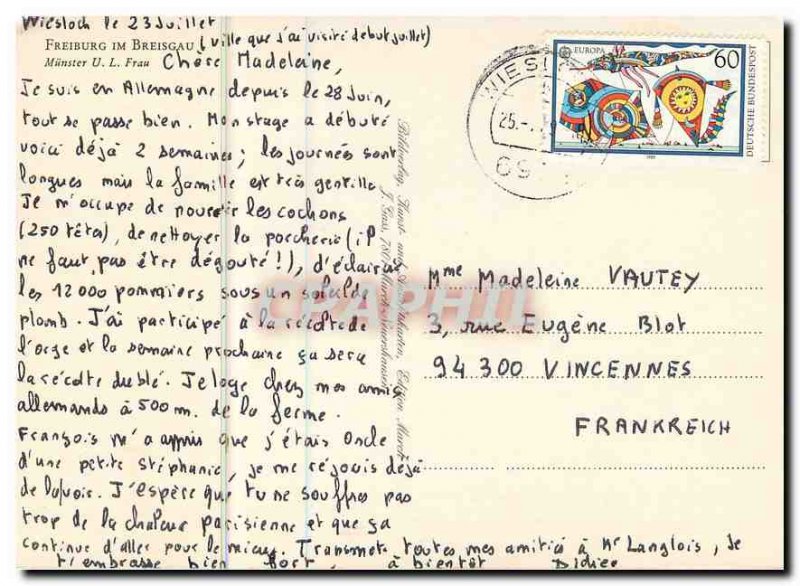 Wiesloch le 23 Juillet
FREIBURG IM BREISGAU
(ville que j'ai visité début juillet)
Münster U. L. Frau
Chère Madeleine,
Je suis en Allemagne depuis le 28 Juin,
tout se passe bien. Mon stage a débuté
voici déjà 2 semaines ; les journées sont
longues mais la famille est très gentille
Je m'occupe de nourrir les cochons
(250 têtes), de nettoyer la porcherie (il
ne faut pas être dégouté !), d'éclaircir
les 12 000 pommiers sous un soleil de
plomb. J'ai participé à la récolte de
l'orge et la semaine prochaine ça sera
la récolte du blé. Je loge chez mes amis
allemands à 500 m. de la ferme.
François m'a appris que j'étais Oncle
d'une petite Stéphanie, je me réjouis déjà
de la voir. J'espère que tu ne souffres pas
trop de la chaleur parisienne et que ça
continue d'aller pour le mieux. Transmets toutes mes amitiés à Mr Langlois, Je
t'embrasse bien fort, à bientôt Didier
Bildverlag, Kunst- und Ansichtskarten, Edition March
EUROPA
60
DEUTSCHE BUNDESPOST
WIESL
25.-
69
CPAPHIL
Mme Madeleine VAUTEY
3, rue Eugène Blot
94 300 VINCENNES
FRANKREICH